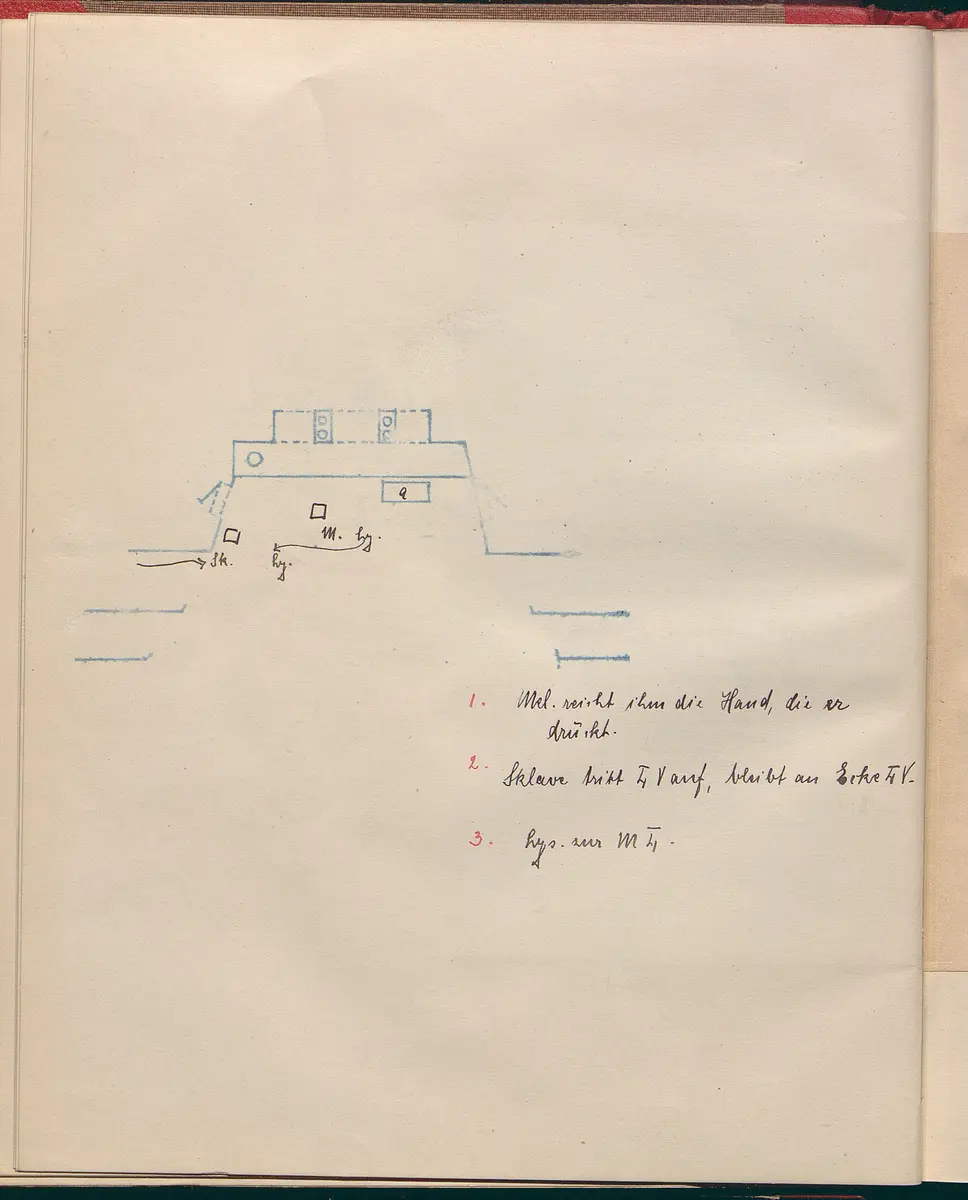 a
M. hy.
Sk. hy.
1. Mel. reicht ihm die Hand, die er
drückt.
2. Sklave tritt V auf, bleibt an Ecke V.
3. hys. zur M